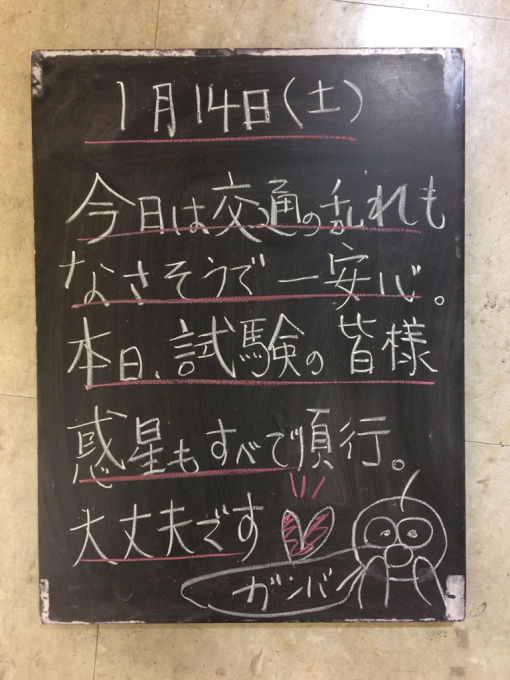 1月14日(土)
今日は交通の乱れも
なさそうで一安心。
本日、試験の皆様
惑星もすべて順行。
大丈夫です
ガンバ